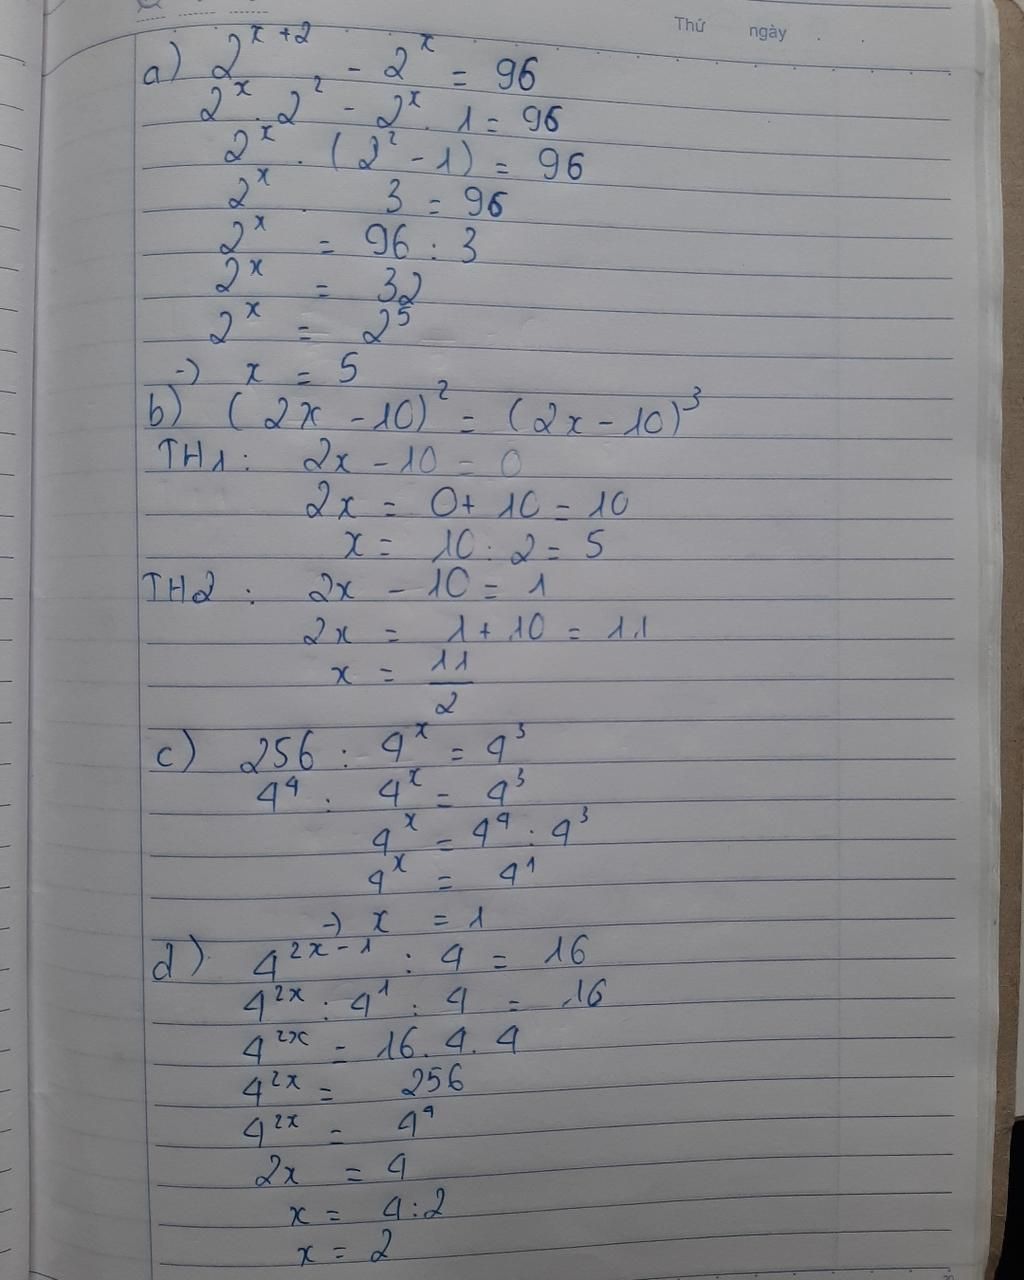 Thứ ngày
a) 2^{x+2} - 2^x = 96
2^x . 2^2 - 2^x . 1 = 96
2^x . (2^2 - 1) = 96
2^x . 3 = 96
2^x = 96 : 3
2^x = 32
2^x = 2^5
-) x = 5
b) (2x - 10)^2 = (2x - 10)^3
TH1 : 2x - 10 = 0
2x = 0 + 10 = 10
x = 10 : 2 = 5
TH2 : 2x - 10 = 1
2x = 1 + 10 = 11
x = \frac{11}{2}
c) 256 : 4^x = 4^3
4^4 : 4^x = 4^3
4^x = 4^4 : 4^3
4^x = 4^1
-) x = 1
d) 4^{2x-1} : 4 = 16
4^{2x} : 4^1 : 4 = 16
4^{2x} = 16 . 4 . 4
4^{2x} = 256
4^{2x} = 4^4
2x = 4
x = 4 : 2
x = 2